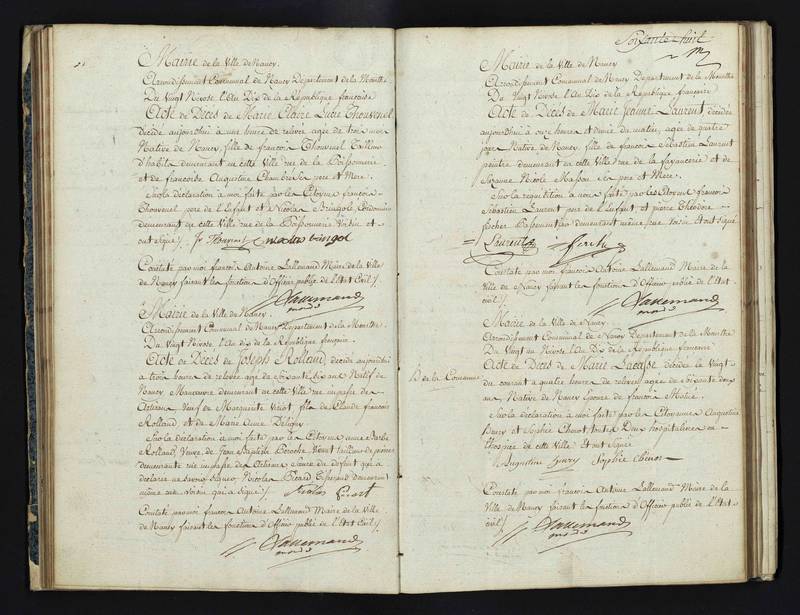 Mairie de la Ville de Nancy.
Arrondissement Communal de Nancy Département de la Meurthe
Du Vingt Nivose l'An Dix de la République françoise
Acte de Décès de Marie Claire Lucie Thouvenel
décédé aujourd'hui à une heure de relevée agée de trois mois
Native de Nancy, fille de françois Thouvenel Tailleur
d'habits demeurant en cette Ville rue de la Poissonnerie
et de françoise Augustine Chambré ses pere et Mere.
Sur la déclaration à moi faite par le Citoyen françois
Thouvenel pere de l'Enfant et Nicolas Bringole Cordonnier
demeurant en cette Ville rue de la Poissonnerie Voisin et
ont signé /. Thouvenel nicolas bringol
Constaté par moi françois Antoine Lallemand Maire de la Ville
de Nancy faisant les fonctions d'Officier public de l'Etat Civil /.
Lallemand
Mairie de la Ville de Nancy.
Arrondissement Communal de Nancy Département de la Meurthe
Du Vingt Nivose l'An dix de la République françoise.
Acte de Décès de Joseph Rolland, décédé aujourd'hui
à trois heures de relevée agé de soixante six ans Natif de
Nancy Manœuvre demeurant en cette Ville rue impasse des
Artisans Veuf de Marguerite Viriot fils de Claude françois
Rolland et de Marie Anne Deligny
Sur la déclaration à moi faite par la Citoyenne anne Barbe
Rolland, Veuve de Jean Baptiste
demeurante rue impasse des Artisans Sœur du défunt qui a
déclaré ne savoir signer, Nicolas Picard Tisserand demeurant
même rue Voisin qui a signé /. Nicolas Picart
Constaté par moi françois Antoine Lallemand Maire de la Ville
de Nancy faisant les fonctions d'Officier public de l'Etat Civil /.
Lallemand
Soixante huit
Mairie de la Ville de Nancy
Arrondissement Communal de Nancy Département de la Meurthe
Du Vingt Nivose l'An Dix de la République françoise
Acte de Décès de Marie Jeanne Laurent, décédée
aujourd'hui à onze heures et demie du matin, agée de quatre
jours Native de Nancy, fille de françois Sébastien Laurent
peintre demeurant en cette Ville rue de la fayancerie et de
Suzanne Nicole Masson ses pere et Mere.
Sur la réquisition à nous faite par les Citoyens françois
Sébastien Laurent pere de l'Enfant et pierre Théodore
fischer Passementier demeurant même rue Voisin et ont Signé
Laurent fischer
Constaté par moi françois Antoine Lallemand Maire de la
Ville de Nancy faisant les fonctions d'Officier public de l'Etat
civil /.
Lallemand
Mairie de la Ville de Nancy.
Arrondissement Communal de Nancy Département de la Meurthe
Du Vingt un Nivose l'An Dix de la République françoise
Acte de Décès de Marie Lacasse décédée le Vingt
du courant à quatre heures de relevée agée de soixante douze
ans, Native de Nancy Epouse de francois
Sur la déclaration à moi faite par les Citoyennes Augustine
Henry et Sophie Chenot toutes Deux hospitalieres en
l'hospice de cette Ville et ont signé
Augustine henry Sophie Chenot
Constaté par moi françois Antoine Lallemand Maire de la
Ville de Nancy faisant les fonctions d'Officier public de l'Etat
civil /.
Lallemand